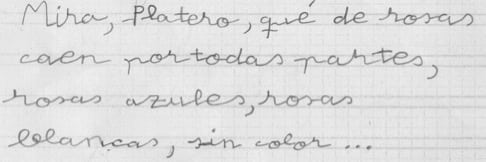 Mira, Platero, qué de rosas
caen por todas partes,
rosas azules, rosas
blancas, sin color ...